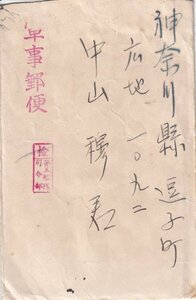 神奈川縣逗子町
広地一〇九二
中山 穆君
軍事郵便